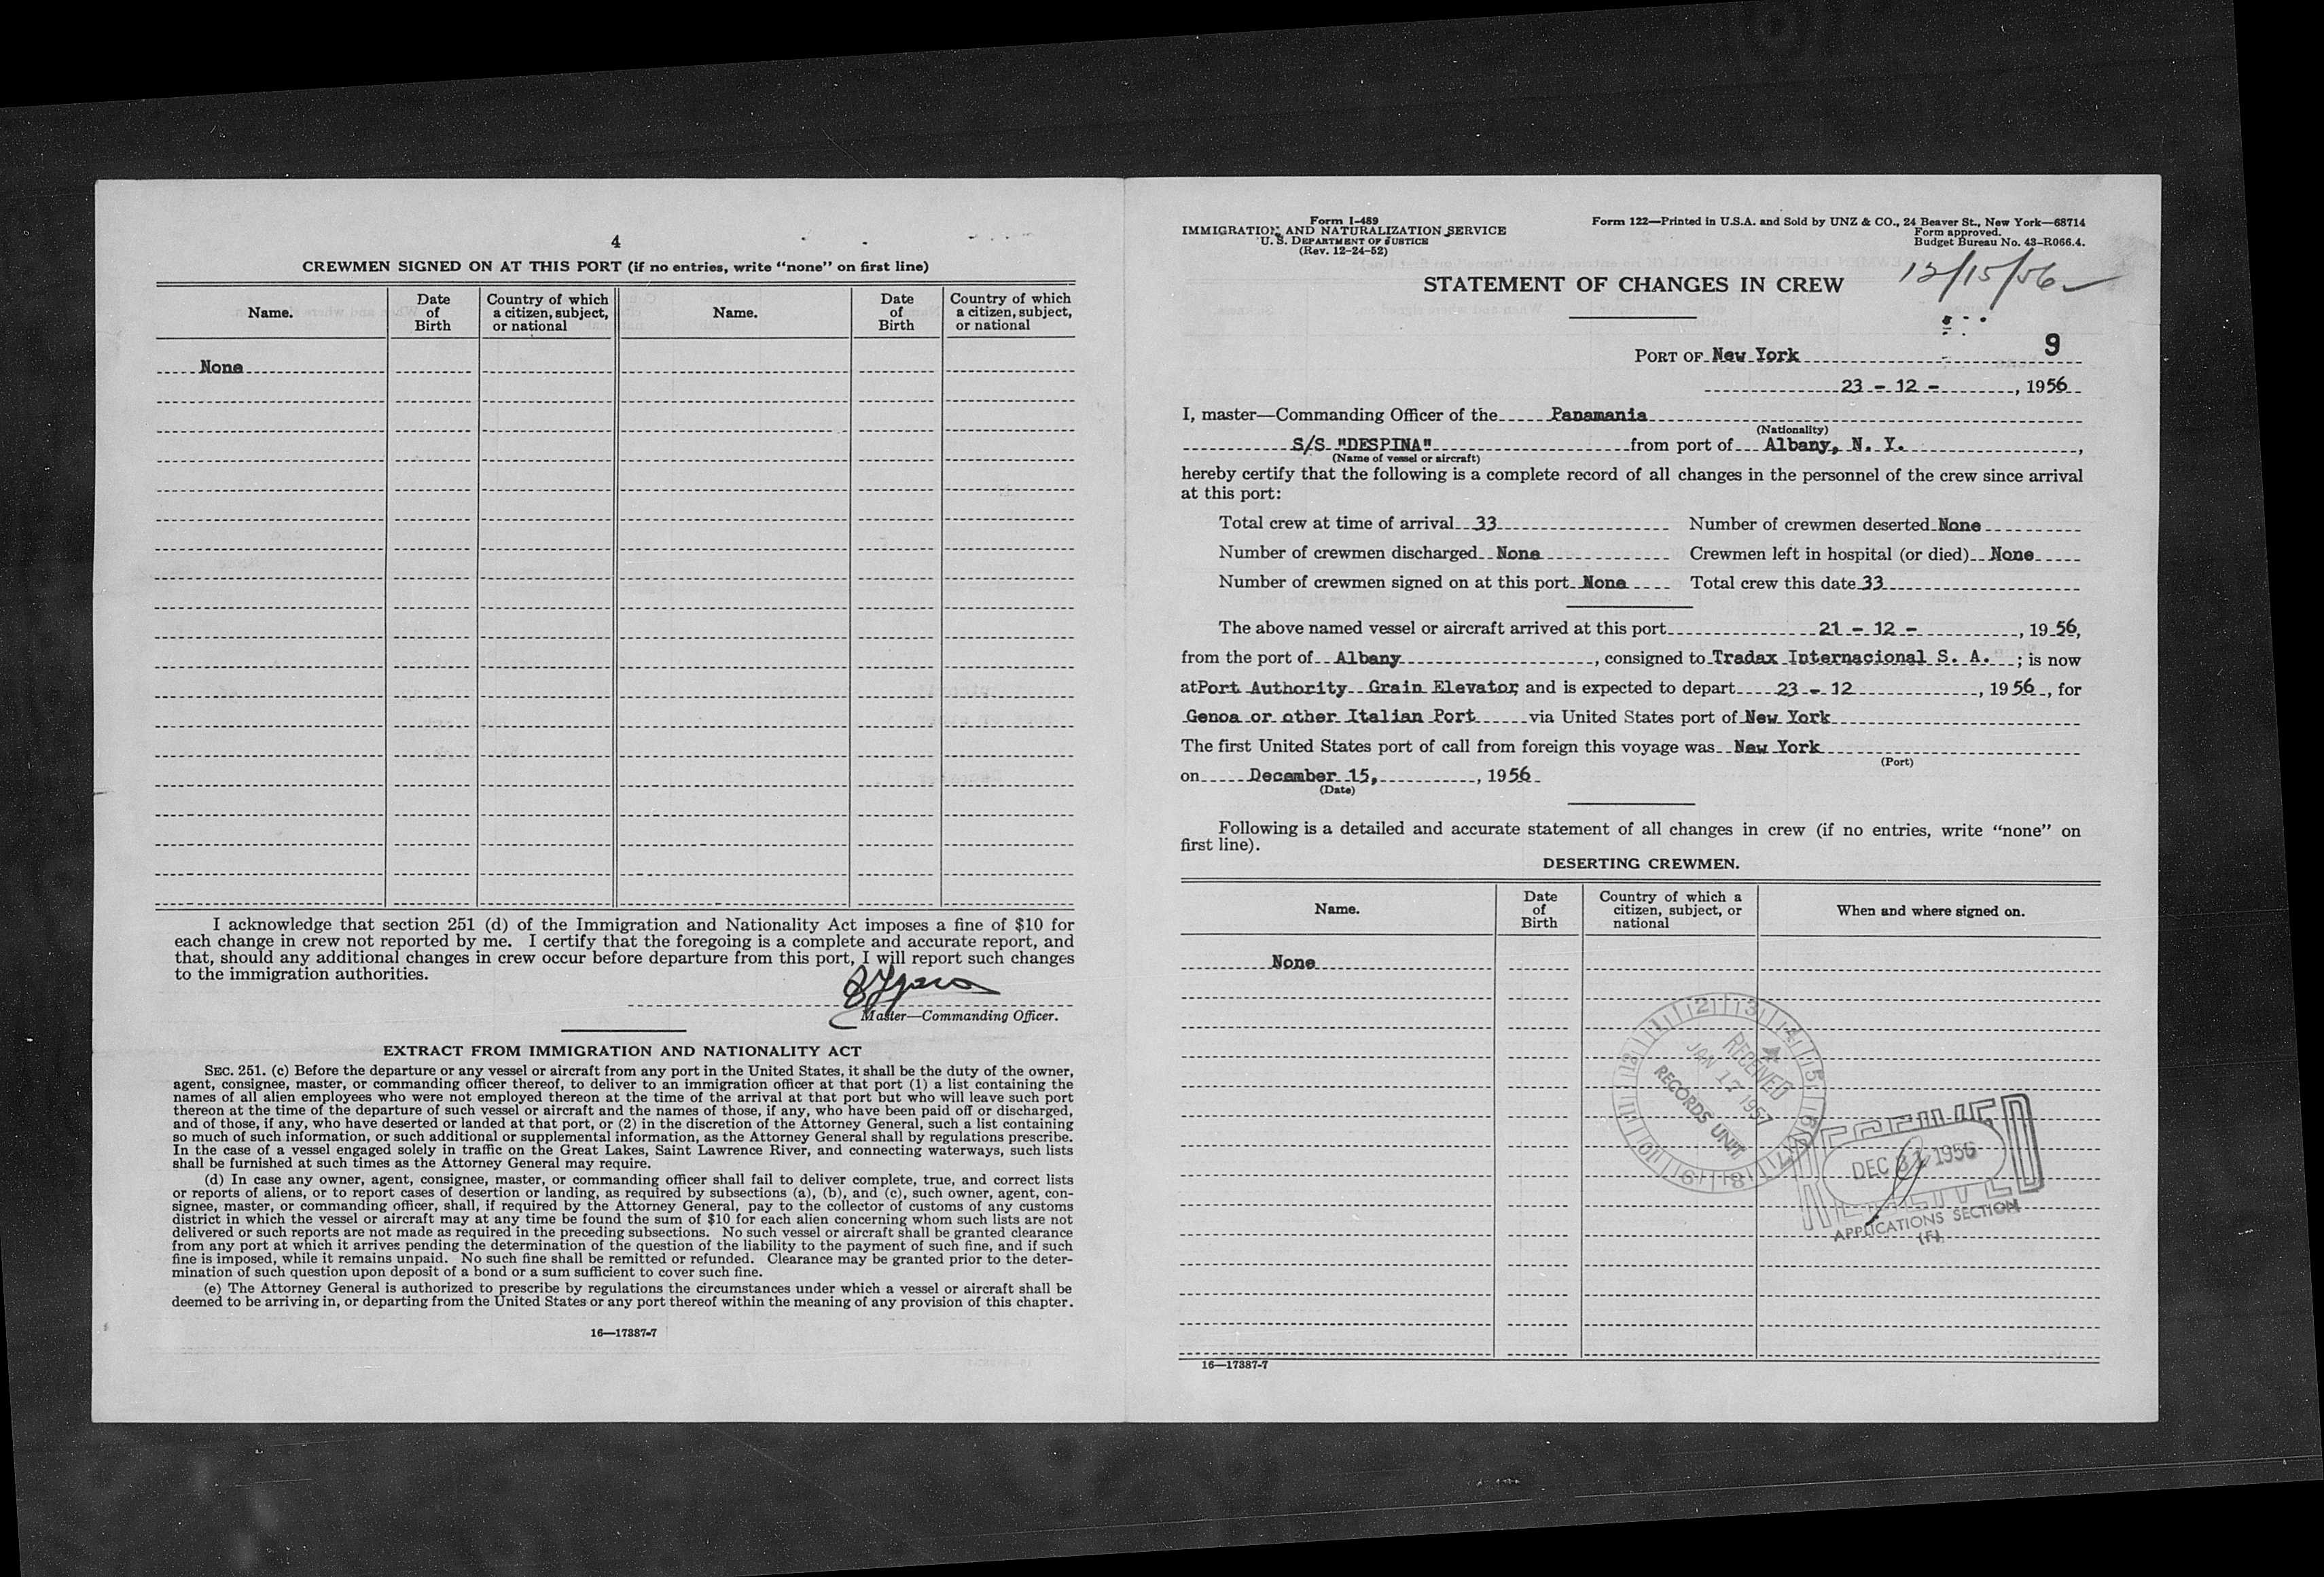 4
CREWMEN SIGNED ON AT THIS PORT (if no entries, write “none” on first line)
Name. Date of Birth Country of which a citizen, subject, or national Name. Date of Birth Country of which a citizen, subject, or national
None
I acknowledge that section 251 (d) of the Immigration and Nationality Act imposes a fine of $10 for
each change in crew not reported by me. I certify that the foregoing is a complete and accurate report, and
that, should any additional changes in crew occur before departure from this port, I will report such changes
to the immigration authorities.
Master—Commanding Officer.
EXTRACT FROM IMMIGRATION AND NATIONALITY ACT
SEC. 251. (c) Before the departure or any vessel or aircraft from any port in the United States, it shall be the duty of the owner,
agent, consignee, master, or commanding officer thereof, to deliver to an immigration officer at that port (1) a list containing the
names of all alien employees who were not employed thereon at the time of the arrival at that port but who will leave such port
thereon at the time of the departure of such vessel or aircraft and the names of those, if any, who have been paid off or discharged,
and of those, if any, who have deserted or landed at that port, or (2) in the discretion of the Attorney General, such a list containing
so much of such information, or such additional or supplemental information, as the Attorney General shall by regulations prescribe.
In the case of a vessel engaged solely in traffic on the Great Lakes, Saint Lawrence River, and connecting waterways, such lists
shall be furnished at such times as the Attorney General may require.
(d) In case any owner, agent, consignee, master, or commanding officer shall fail to deliver complete, true, and correct lists
or reports of aliens, or to report cases of desertion or landing, as required by subsections (a), (b), and (c), such owner, agent, con-
signee, master, or commanding officer, shall, if required by the Attorney General, pay to the collector of customs of any customs
district in which the vessel or aircraft may at any time be found the sum of $10 for each alien concerning whom such lists are not
delivered or such reports are not made as required in the preceding subsections. No such vessel or aircraft shall be granted clearance
from any port at which it arrives pending the determination of the question of the liability to the payment of such fine, and if such
fine is imposed, while it remains unpaid. No such fine shall be remitted or refunded. Clearance may be granted prior to the deter-
mination of such question upon deposit of a bond or a sum sufficient to cover such fine.
(e) The Attorney General is authorized to prescribe by regulations the circumstances under which a vessel or aircraft shall be
deemed to be arriving in, or departing from the United States or any port thereof within the meaning of any provision of this chapter.
16—17387-7
Form I-489
IMMIGRATION AND NATURALIZATION SERVICE
U. S. DEPARTMENT OF JUSTICE
(Rev. 12-24-52)
Form 122—Printed in U.S.A. and Sold by UNZ & CO., 24 Beaver St., New York—68714
Form approved.
Budget Bureau No. 43-R066.4.
12/15/56
STATEMENT OF CHANGES IN CREW
9
PORT OF New York
23 - 12 - , 1956
I, master—Commanding Officer of the Panamania
(Nationality)
S/S "DESPINA" from port of Albany, N. Y. ,
(Name of vessel or aircraft)
hereby certify that the following is a complete record of all changes in the personnel of the crew since arrival
at this port:
Total crew at time of arrival 33 Number of crewmen deserted None
Number of crewmen discharged None Crewmen left in hospital (or died) None
Number of crewmen signed on at this port None Total crew this date 33
The above named vessel or aircraft arrived at this port 21 - 12 - , 19 56,
from the port of Albany , consigned to Tradax Internacional S. A. ; is now
at Port Authority Grain Elevator, and is expected to depart 23 - 12 , 19 56 , for
Genoa or other Italian Port via United States port of New York
The first United States port of call from foreign this voyage was New York
(Port)
on December 15, , 1956
(Date)
Following is a detailed and accurate statement of all changes in crew (if no entries, write “none” on
first line).
DESERTING CREWMEN.
Name. Date of Birth Country of which a citizen, subject, or national When and where signed on.
None
RECEIVED
JAN 17 1957
RECORDS UNIT
1 2 3 4 5 6 7 8 9 10 11 12
RECEIVED
DEC 31 1956
APPLICATIONS SECTION
(F)
16—17387-7